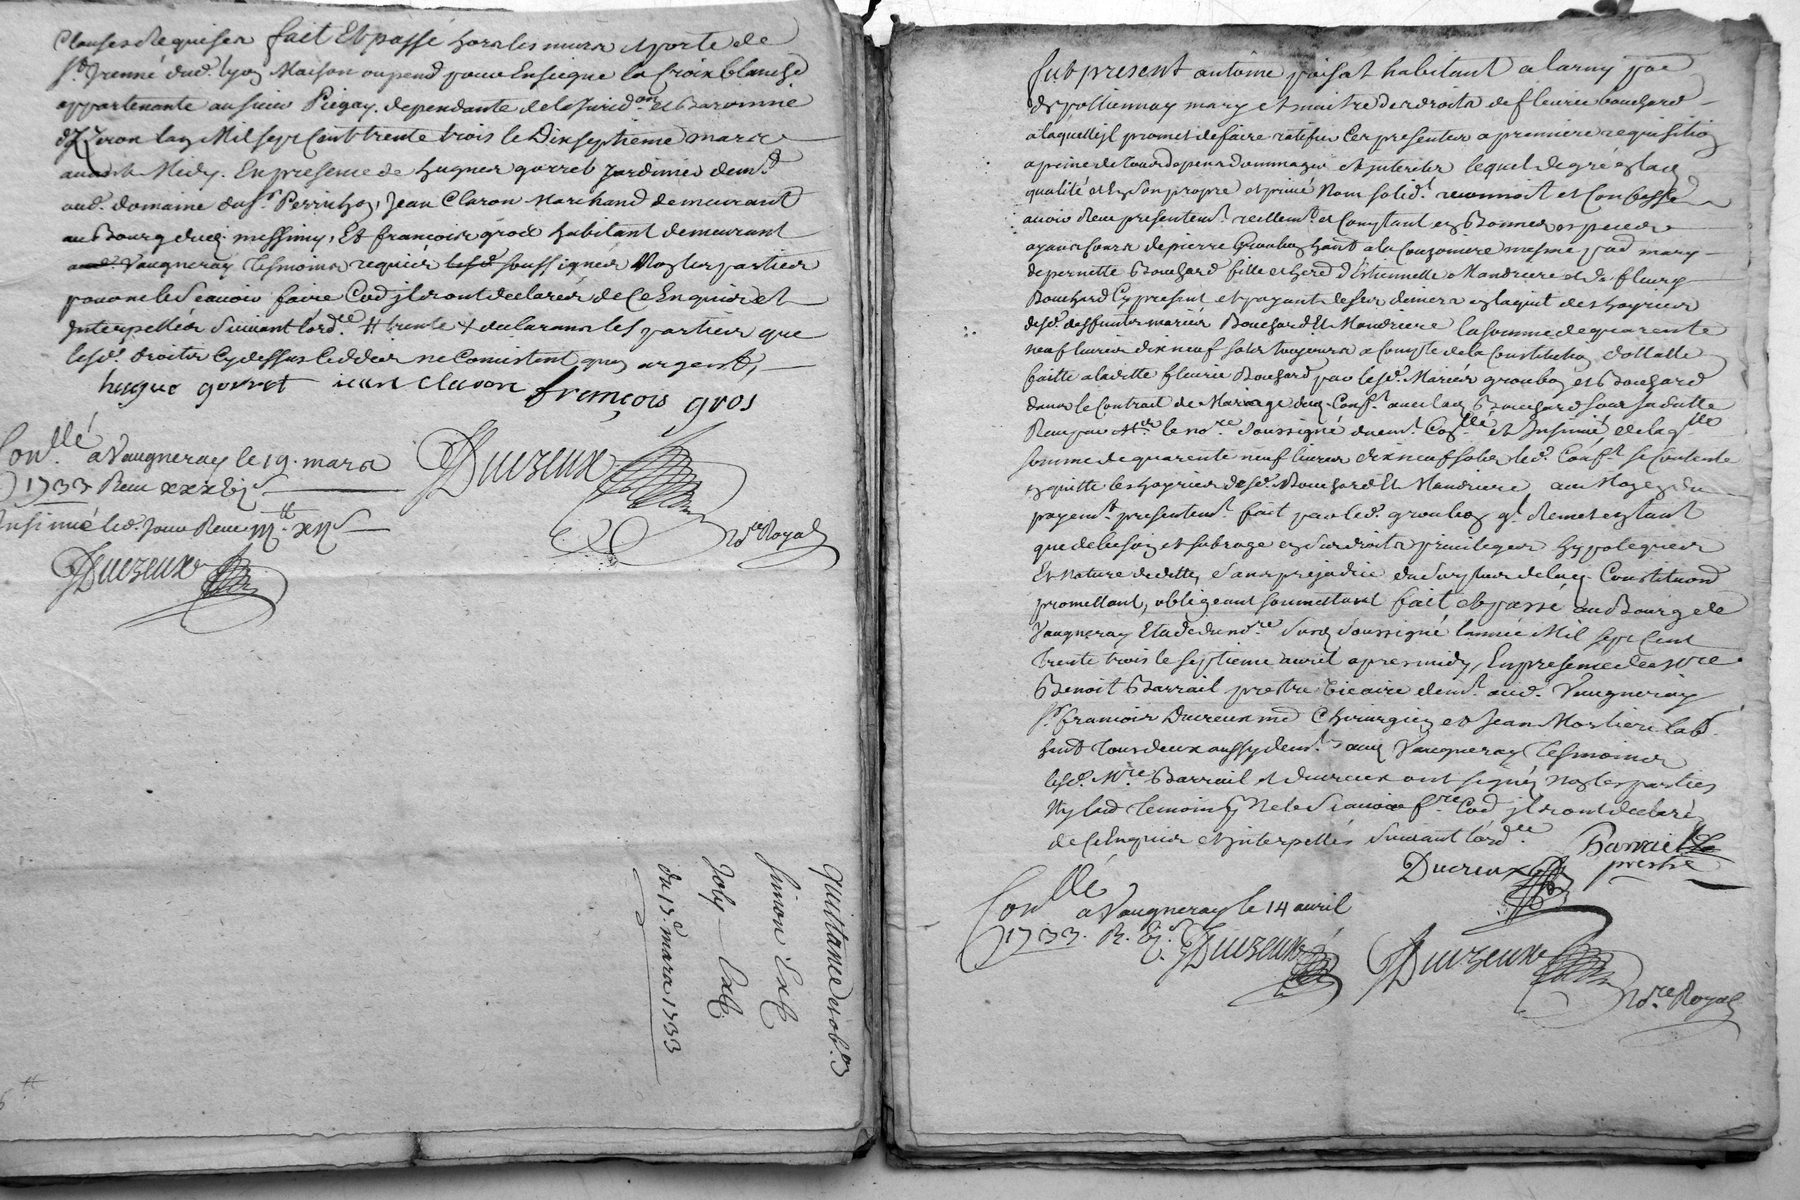 Clauses requises fait et passé hors les murs et porte de
St Irenné dud. lyon Maison ou pend pour Enseigne la Croix blanche
appartenante au sieur Piegay. dependante de la Juridon et Baronnie
Mil sept Cent trente trois le Dix septieme mars
Midy. En presence de hugues gorret Jardinier demt
aud. domaine du Sr Perrichon, Jean Claron Marchand demeurant
au Bourg de messimy, Et françois gros habitant demeurant
Vaugneray tesmoins requis soussignés Non les parties
pour ne le scavoir faire Cōe ils ont declarés de Ce Enquis et
interpellés Suivant l'ordce # trente + declarans les parties que
lesd. droits Cy dessus ceddés ne Consistent qu'en argent,
hugue gorret ian claron françois gros
Conllé a Vaugneray le 19. mars
1733 Receu
Insinué led. Jour Receu
Ducreux
Nore Royal
Ducreux
quittance et obon
Simon
Joly
du 17e mars 1733
fut present antoine poisat habitant a larny pāe
de pollionnay mary et maitre des droits de fleurie bouchard
a laquelle il promet de faire ratifier Ces presentes a premiere requisition
a peine de tous depens dommages et interets lequel de gré en lad.
qualité et En son propre et privé Nom solidt reconnoit et Confesse
avoir Receu presentemt reellemt et Comptant en Bonnes especes
ayans Cours de pierre groubon hant a la Couzonniere mesme pāe mary
de pernette Bouchard fille et herd d'Estiennette Mandriere et de fleury
Bouchard Cy present et payant de ses deniers en laquit des hoyries
desd. deffunts mariés Bouchard Et Mandriere la somme de quarente
neuf livres dix neuf sols toujours a Compte de la Constitution dottalle
faitte a laditte fleurie Bouchard par lesd. Mariés groubon et Bouchard
dans le Contrat de Mariage dud. Conft avec lad. Bouchard sous sa datte
Receu par Me le nore soussigné duemt Conllé et Insinué de laqlle
somme de quarente neuf livres dix neuf sols led. Conft se Contente
en quitte les hoyries desd. Bouchard Et Mandriere au Moyen du
payemt presentemt fait par led. groubon ql demet en tant
que de besoin et subroge en ses droits privileges hypoteques
Et Nature de dette, sans prejudice du Surplus de lad. Constituon
promettant, obligeant soumettant fait et passé au Bourg de
Vaugneray Etude du nore Susd. Soussigné l'année Mil sept Cent
trente trois le septieme avril apres midy, En presence de Mre
Benoit Barrail prestre vicaire demt aud. Vaugneray
Sr françois Ducreux md Chirurgien et Jean Mortier labr
hant tous deux aussy demt aud. Vaugneray tesmoins
lesd. Mre Barrail et ducreux ont signés Non les parties
Ny laud temoin p. Ne le Scavoir fre Cōe ils ont declaré
de Ce Enquis et interpellés Suivant l'ordce
Barrail
prestre
Ducreux
Conllé a Vaugneray le 14 avril
1733. R.
Ducreux
Ducreux
Nore Royal